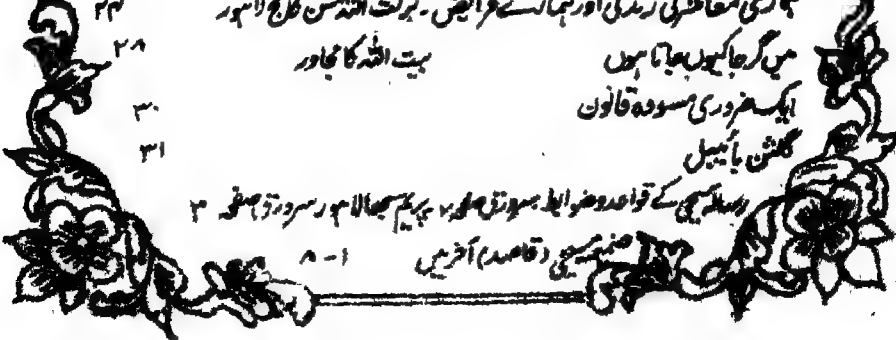 ہماری معاشرتی زندگی اور ہمارے فرائض۔ برکت اللہ مشن کالج لاہور ۲۴
میں گرجا کیوں جاتا ہوں بیت اللہ کا مجاور ۲۸
ایک ضروری مسودہ قانون ۳۰
گلشن بائیبل ۳۱
رسالہ مسیحی کے قواعد وضوابط سرورق صفحہ ۲ سرورق صفحہ ۳
ضمیمہ مسیحی (قاصد) آخر میں ۱-۸